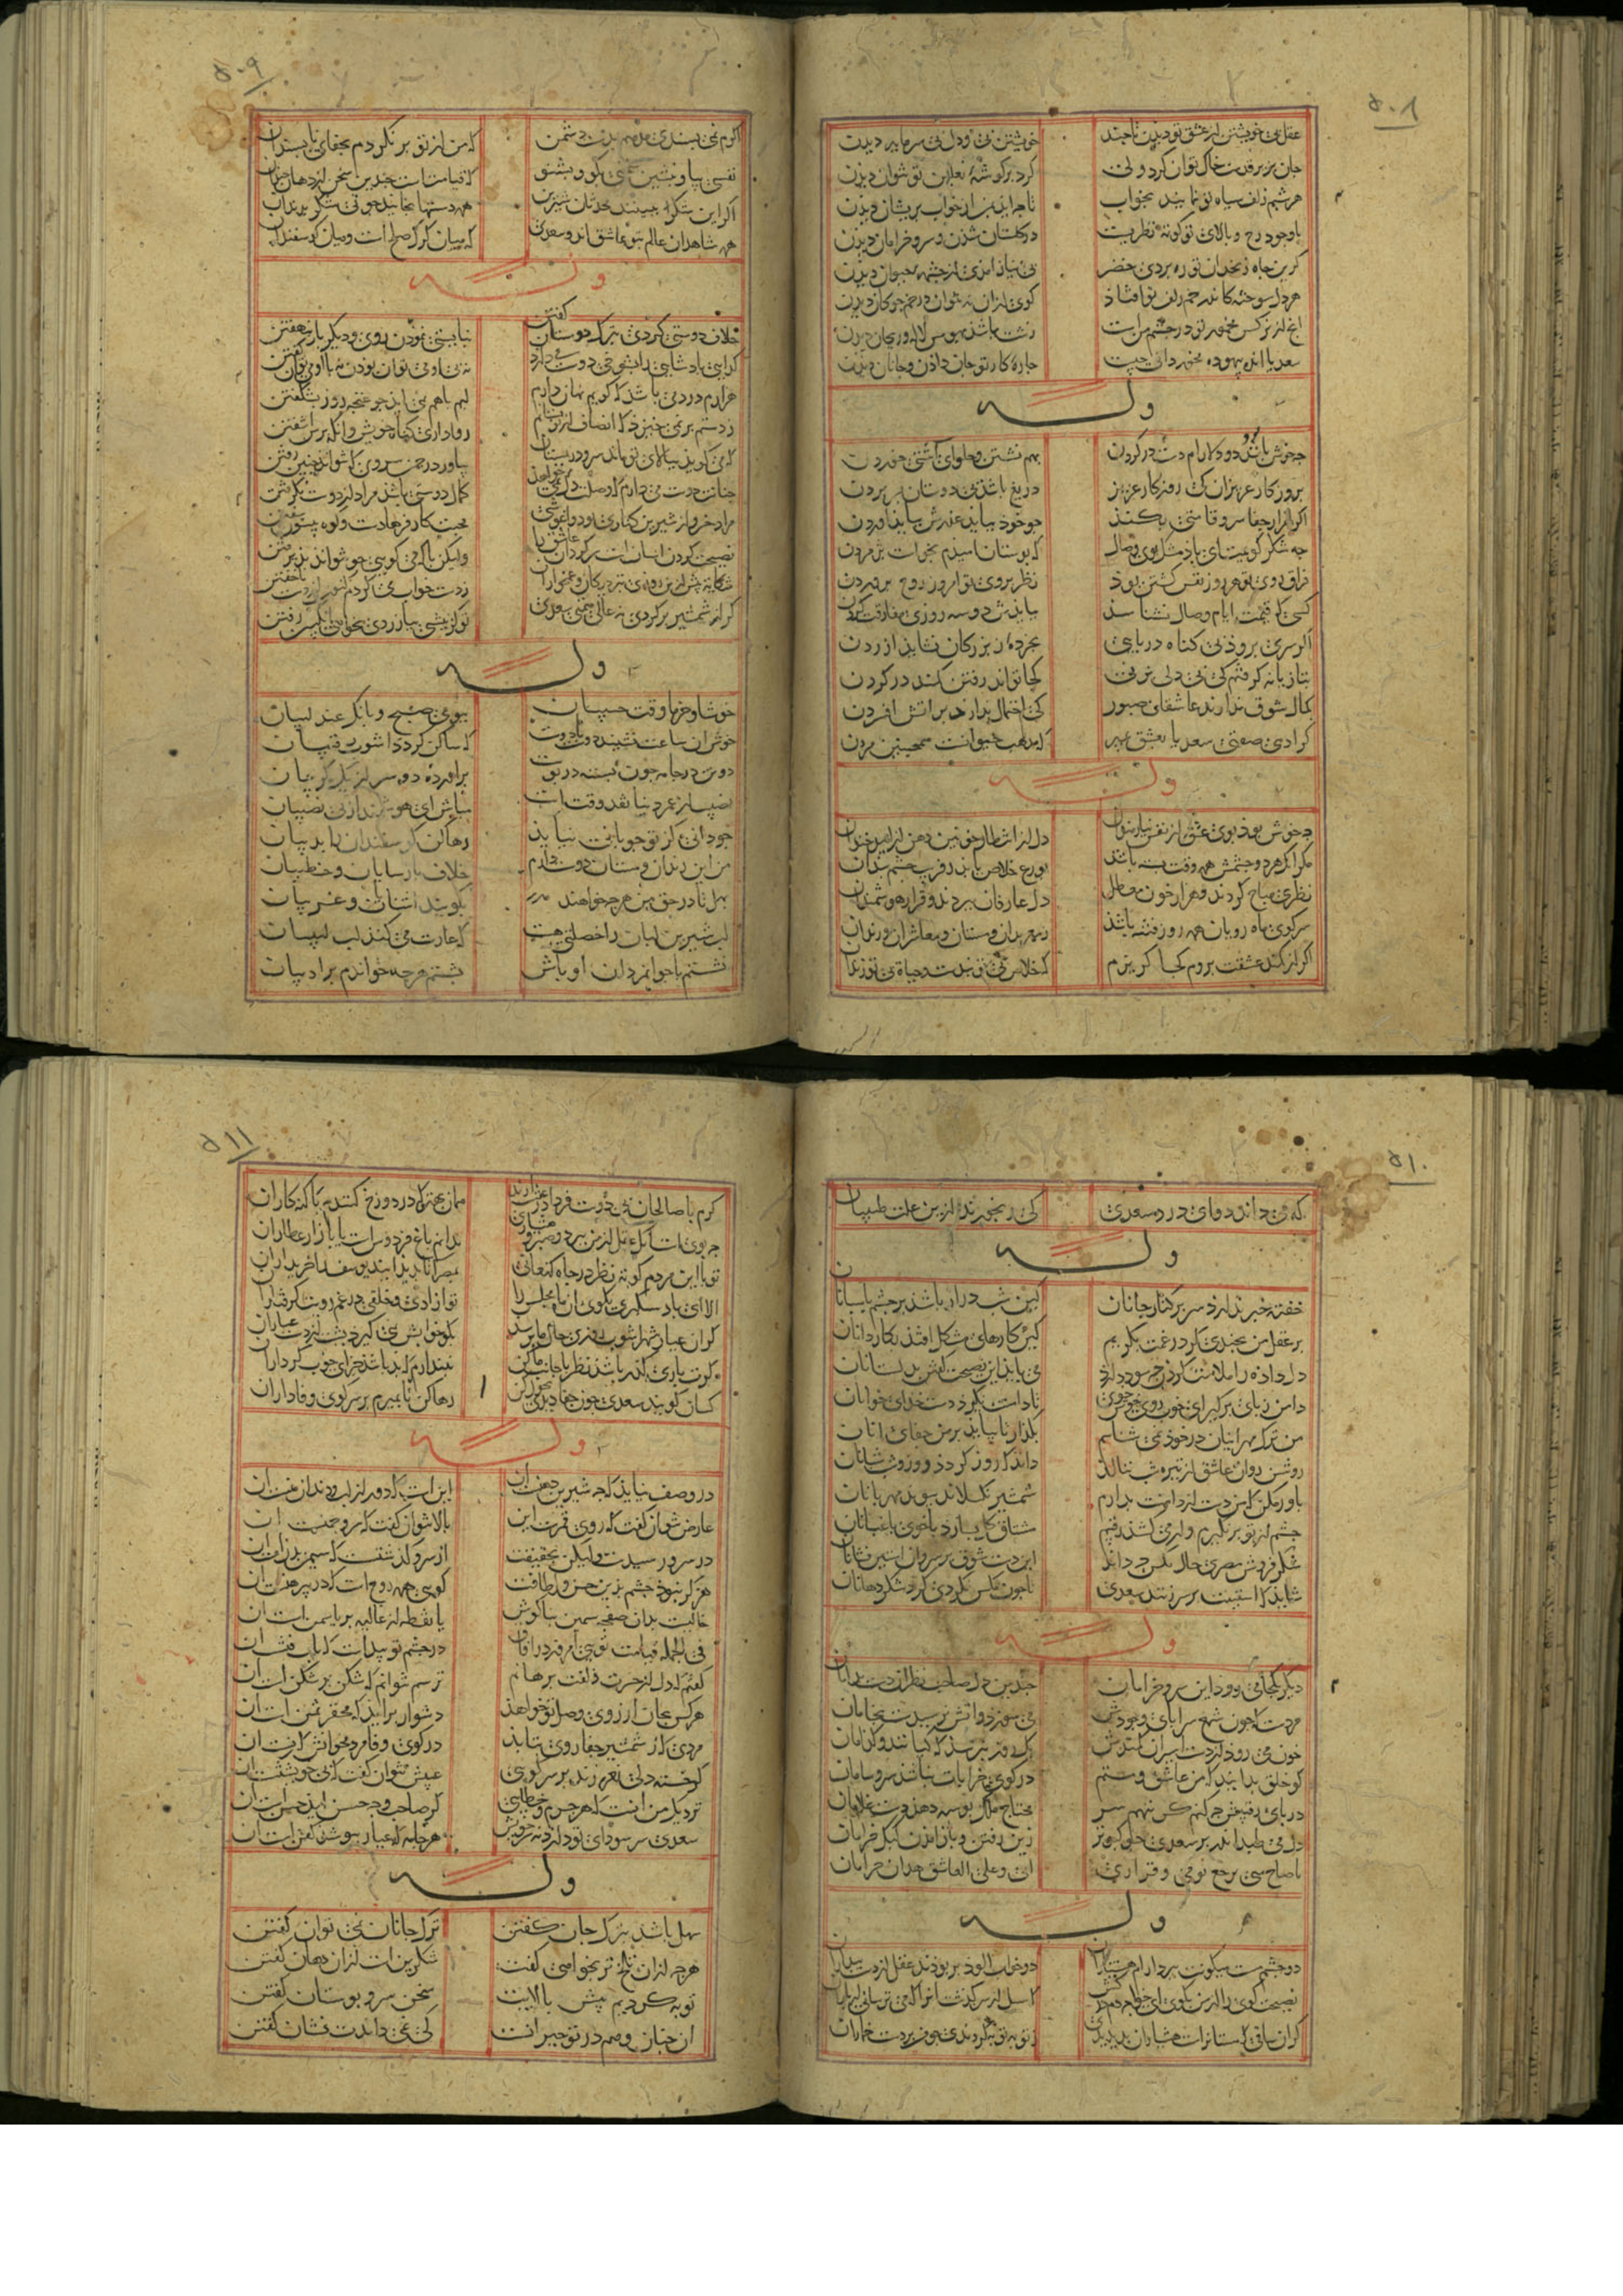 ۵۰۸
عقل بی خویشتن از عشق تو دیدن تا چند
خویشتن بی دل و دل بی سر و سامان دیدن
جان بزیر قدمت خاک توان کرد ولی
کرد بر کوشهٔ نعلین تو نتوان دیدن
هر شبم زلف سیاه تو نمایند بخواب
تا چه آید بمن از خواب پریشان دیدن
با وجود رخ و بالای تو کوته نظریست
در کلستان شدن و سرو خرامان دیدن
کر بر این چاه زنخدان تو ره بردی خضر
بی نیاز آمدی از چشمه حیوان دیدن
هر دل سوخته کاندر خم زلف تو افتاذ
کوی از آن به نتوان در خم چوکان دیدن
آنچ از نرکس مخمور تو در چشم منست
سعدیا حسرت بیهوده مخور دانی چیست
چاره کار تو جان دادن و جانان دیدن
وله
چه خوش باشد دو دلارام دست در کردن
بهم نشستن و حلوای آشتی خوردن
بروزکار عزیزان که روزکار عزیز
دریغ باشد بی دوستان بسر بردن
اکر هزار جفا سروقامتی بکند
چو خود بیاید عذرش بباید آوردن
چه شکر کویمت ای باد مشک بوی وصال
که بوستان امیدم بخواست پژمردن
فراق روی تو هر روز نفس کشتن بود
نظر بروی تو امروز روح پروردن
کسی که قیمت ایام وصال نشناسد
ببایدش دو سه روزی مفارقت کردن
اکر سری برود بی کناه در پایی
بخرده‌ای ز بزرکان نشاید آزردن
بتازیانه کرفتم که بی دلی بزنی
کجا تواند رفتن کمند در کردن
کمال شوق ندارند عاشقان صبور
که احتمال ندارد بر آتش افسردن
کر آدمی صفتی سعدیا بعشق بمیر
که مذهب حیوانست همچنین مردن
وله
چه خوش بود بوی عشق از نفس نیازمندان
دل از انتظار خونین دهن از امید خندان
مکر آنکه هر دو چشمش همه وقت بسته باشد
بورع خلاص یابد ز فریب چشم بندان
نظری مباح کردند و هزار خون معطل
دل عارفان ببردند و قرار هوشمندان
سر کوی ماه رویان همه روز فتنه باشد
ز معربدان و مستان و معاشران و رندان
اکر از کمند عشقت بروم کجا کریزم
که خلاص بی تو بندست و حیاة بی تو زندان
۵۰۹
اکرم نمی پسندی مدهم بدست دشمن
که من از تو بر نکردم بجفای ناپسندان
نفسی بیا و بنشین سخنی بکو و بشنو
که قیامتست چندین سخن از دهان خندان
اکر این شکر ببینند محدثان شیرین
همه دستها بخایند چو نی شکر بدندان
همه شاهدان عالم بتو عاشق اند سعدی
که میان کرک صلحست و میان کوسفندان
وله
خلاف دوستی کردن بترک دوستان کفتن
نبایستی نمودن روی و دیکر باز نهفتن
کدایی پادشاهی را بشوخی دوست می دارد
نه بی او می توان بودن نه با او می توان کفتن
هزارم درد می باشد که کویم نهان دارم
لبم با هم نمی آید چو غنچه روز بشکفتن
ز دستم بر نمی خیزد که انصاف از تو بستانم
روا داری کناه خویش وانکه بر من آشفتن
که می کوید ببالای تو ماند سرو در بستان
بیاور در چمن سروی که بتواند چنین رفتن
چنانت دوست می دارم که وصلت دل نمی خواهد
کمال دوستی باشد مراد از دوست نکرفتن
مراد خسرو از شیرین کناری بود و آغوشی
محبت کار فرهادست و کوه بیستون سفتن
نصیحت کردن آسانست سرکردان عاشق را
ولیکن با که می کویی که نتواند پذیرفتن
شکایت پیش از این روزی بنزدیکان و غمخواران
ز دست خواب می کردم کنون از دست ناخفتن
کر از شمشیر برکردی نه عالی همتی سعدی
تو کز نیشی بیازردی نخواهی انکبین رفتن
وله
خوشا و خرما وقت حبیبان
ببوی صبح و بانک عندلیبان
خوش آن ساعت نشیند دوست با دوست
که ساکن کردد آشوب رقیبان
دو تن در جامه چون پسته در پوست
برآورده دو سر از یک کریبان
نصیب از عمر دنیا نقد وقتست
مباش ای هوشمند از بی نصیبان
چو دانی کز تو چوپانی نیاید
رها کن کوسفندان را بذیبان
من این رندان و مستان دوست دارم
خلاف پارسایان و خطیبان
بهل تا در حق من هرچه خواهند
بکویند آشنایان و غریبان
لب شیرین لبان را خصلتی هست
که غارت می کند لب لبیبان
نشستم با جوانمردان اوباش
بشستم هرچه خواندم بر ادیبان
۵۱۰
که می داند دوای درد سعدی
که رنجورند از این علت طبیبان
وله
خفته خبر ندارد سر بر کنار جانان
کین شب دراز باشد بر چشم پاسبانان
بر عقل من بخندی کر در غمت بکریم
کین کارهای مشکل افتد بکاردانان
دل داده را ملامت کردن چه سود دارد
می باید این نصیحت کردن بدلستانان
دامن ز پای برکیر ای خوب روی خوش رو
تا دامنت نکیرد دست خدای خوانان
من ترک مهر اینان در خود نمی شناسم
بکذار تا بیاید بر من جفای آنان
روشن روان عاشق از تیره شب ننالد
داند که روز کردد روزی شب شبانان
باور مکن که من دست از دامنت بدارم
شمشیر نکسلاند پیوند مهربانان
چشم از تو بر نکیرم ور می کشد رقیبم
مشتاق کل بسازد با خوی باغبانان
شکر فروش مصری حال مکس چه داند
این دست شوق بر سر وان آستین فشانان
شاید که آستینت بر سر زنند سعدی
تا چون مکس نکردی کرد شکر دهانان
وله
دیکر بکجا می رود این سرو خرامان
چندین دل صاحب نظران دست بدامان
مردست که چون شمع سراپای وجودش
می سوزد و آتش نرسیدست بخامان
خون می رود از دست اسیران کمندش
یک روز نپرسد که کیانند و کدامان
کو خلق بدانند که من عاشق و مستم
در کوی خرابات نباشد سر و سامان
در پای رقیبش چه کنم کر ننهم سر
محتاج ملک بوسه دهد دست غلامان
دل می طپد اندر بر سعدی چو کبوتر
زین رفتن و باز آمدن کبک خرامان
یا صاح متی یرجع نومی و قراری
انی و علی العاشق هذان حرامان
وله
دو چشم مست میکونت ببرد آرام هشیاران
دو خواب آلوده بربودند عقل از دست بیداران
نصیحت کوی را از من بکو ای خواجه دم درکش
که سیل از سر کذشت آنرا که می ترسانی از باران
کر آن ساقی که مستانراست هشیاران بدیدندی
ز توبه توبه کردندی چو من بر دست خماران
۵۱۱
کرم با صالحان بی دوست فردا در بهشت آرند
همان بهتر که در دوزخ کنندم با کنه کاران
چه بویست آنکه عقل از من ببرد و صبر و هشیاری
ندانم باغ فردوسست یا بازار عطاران
تو با این مردم کوته نظر در چاه کنعانی
بمصر آ تا پدید آیند یوسف را خریداران
الا ای باد شبکیری بکوی آن ماه مجلس را
تو آزادی و خلقی در غم رویت کرفتاران
کر آن عیار شهرآشوب روزی حال ما پرسد
بکو خوابش نمی کیرد بشب از دست عیاران
کرت باری کذر باشد نظر با جانب ما کن
نپندارم که بد باشد جزای خوب کرداران
کسان کویند سعدی جور چندین بردی
رها کن تا بمیرم بر سر کوی وفاداران
وله
در وصف نیاید که چه شیرین دهنست آن
اینست که دور از لب و دندان منست آن
عارض نتوان کفت که روی قمرست این
بالا نتوان کفت که سرو چمنست آن
در سرو رسیدست ولیکن بحقیقت
از سرو کذشتست که سیمین بدنست آن
هرکز نبود جسم بدین حسن و لطافت
کویی همه روحست که در پیرهنست آن
خالست بر آن صفحه سیمین بناکوش
یا نقطه از غالیه بر یاسمنست آن
فی الجمله قیامت تویی امروز در آفاق
در چشم تو پیداست که باب فتنست آن
کفتم که دل از حسرت زلفت برهانم
ترسم نتوانم که شکن بر شکنست آن
هر کس بجان آرزوی وصل تو خواهد
دشوار برآید که محقر ثمنست آن
مردی که ز شمشیر جفا روی بتابد
در کوی وفا مرد مخوانش که زنست آن
کر خسته دلی نعره زند بر سر کویی
عیبش نتوان کفت که بی خویشتنست آن
نزدیک من آنست که هر جرم و خطایی
کز صاحب وجه حسن آید حسنست آن
سعدی سر سودای تو دارد نه سر خویش
هر جامه که عیار بپوشد کفنست آن
وله
سهل باشد بترک جان کفتن
ترک جانان نمی توان کفتن
هرچه زان تلخ تر بخواهی کفت
شکرینست از آن دهان کفتن
توبه کردیم پیش بالایت
سخن سرو بوستان کفتن
آن چنان وهم در تو حیرانست
که نمی داندت نشان کفتن